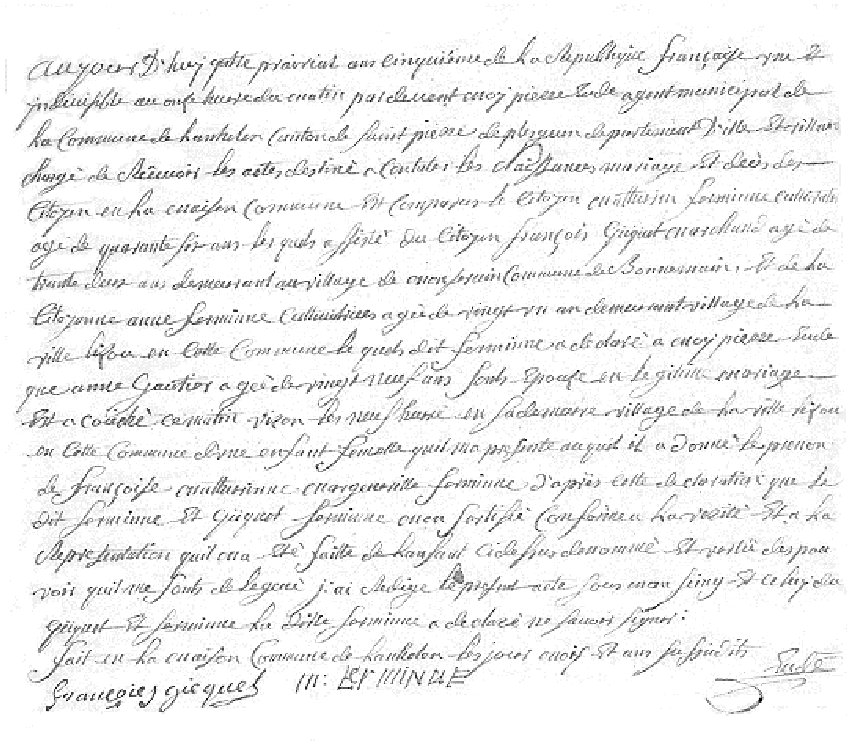 aujourd'huy quatre prairial ans cinquième de la République française une Et
jndivisible au onze heure du matin par devent moy pierre Eude agent municipal de
la Commune de lanhelen Canton de Saint pierre de plerguen departement D'ille Et villaine
chargé de Recevoir les actes destiné a Constater les Naissances mariage Et decès des
Citoyen en la maison Commune Est Comparus le Citoyen mathurin forminne Cultivateur
agé de quarante six ans les quels assisté du Citoyen françois Gicquet marchand agé de
trante deux ans demeurant au village de Commune de Bonnemain, Et de la
Citoyenne anne forminne Cultivatrices agée de vingt un an demeurant village de la
ville en Cette Commune le quels dit forminne a declaré a moy pierre Eude
que anne Gautier agée de vingt neuf ans sont Epouse en legitime mariage
Est acouché ce matin vizon les neuf heure en sa demeure village de la ville
en Cette Commune d'une enfant femelle quil ma presenté auquel il a donné le prenon
de françoise mathurinne forminne d'après cette declaration que le
dit forminne Et Gicquet forminne mon sertifié Conforme a la verité Et a la
Représentation quil ma Eté faitte de lanfant cidessus denommé Et vertu des pou
voir quil me sonts delegué j'ai Redigé le présent acte sous mon seing Et celuy du
gicquet Et forminne la ditte forminne a declaré ne savoir signer:
fait en la maison Commune de lanhelen les jours mois Et ans susdits
françois gicquel m: Eude